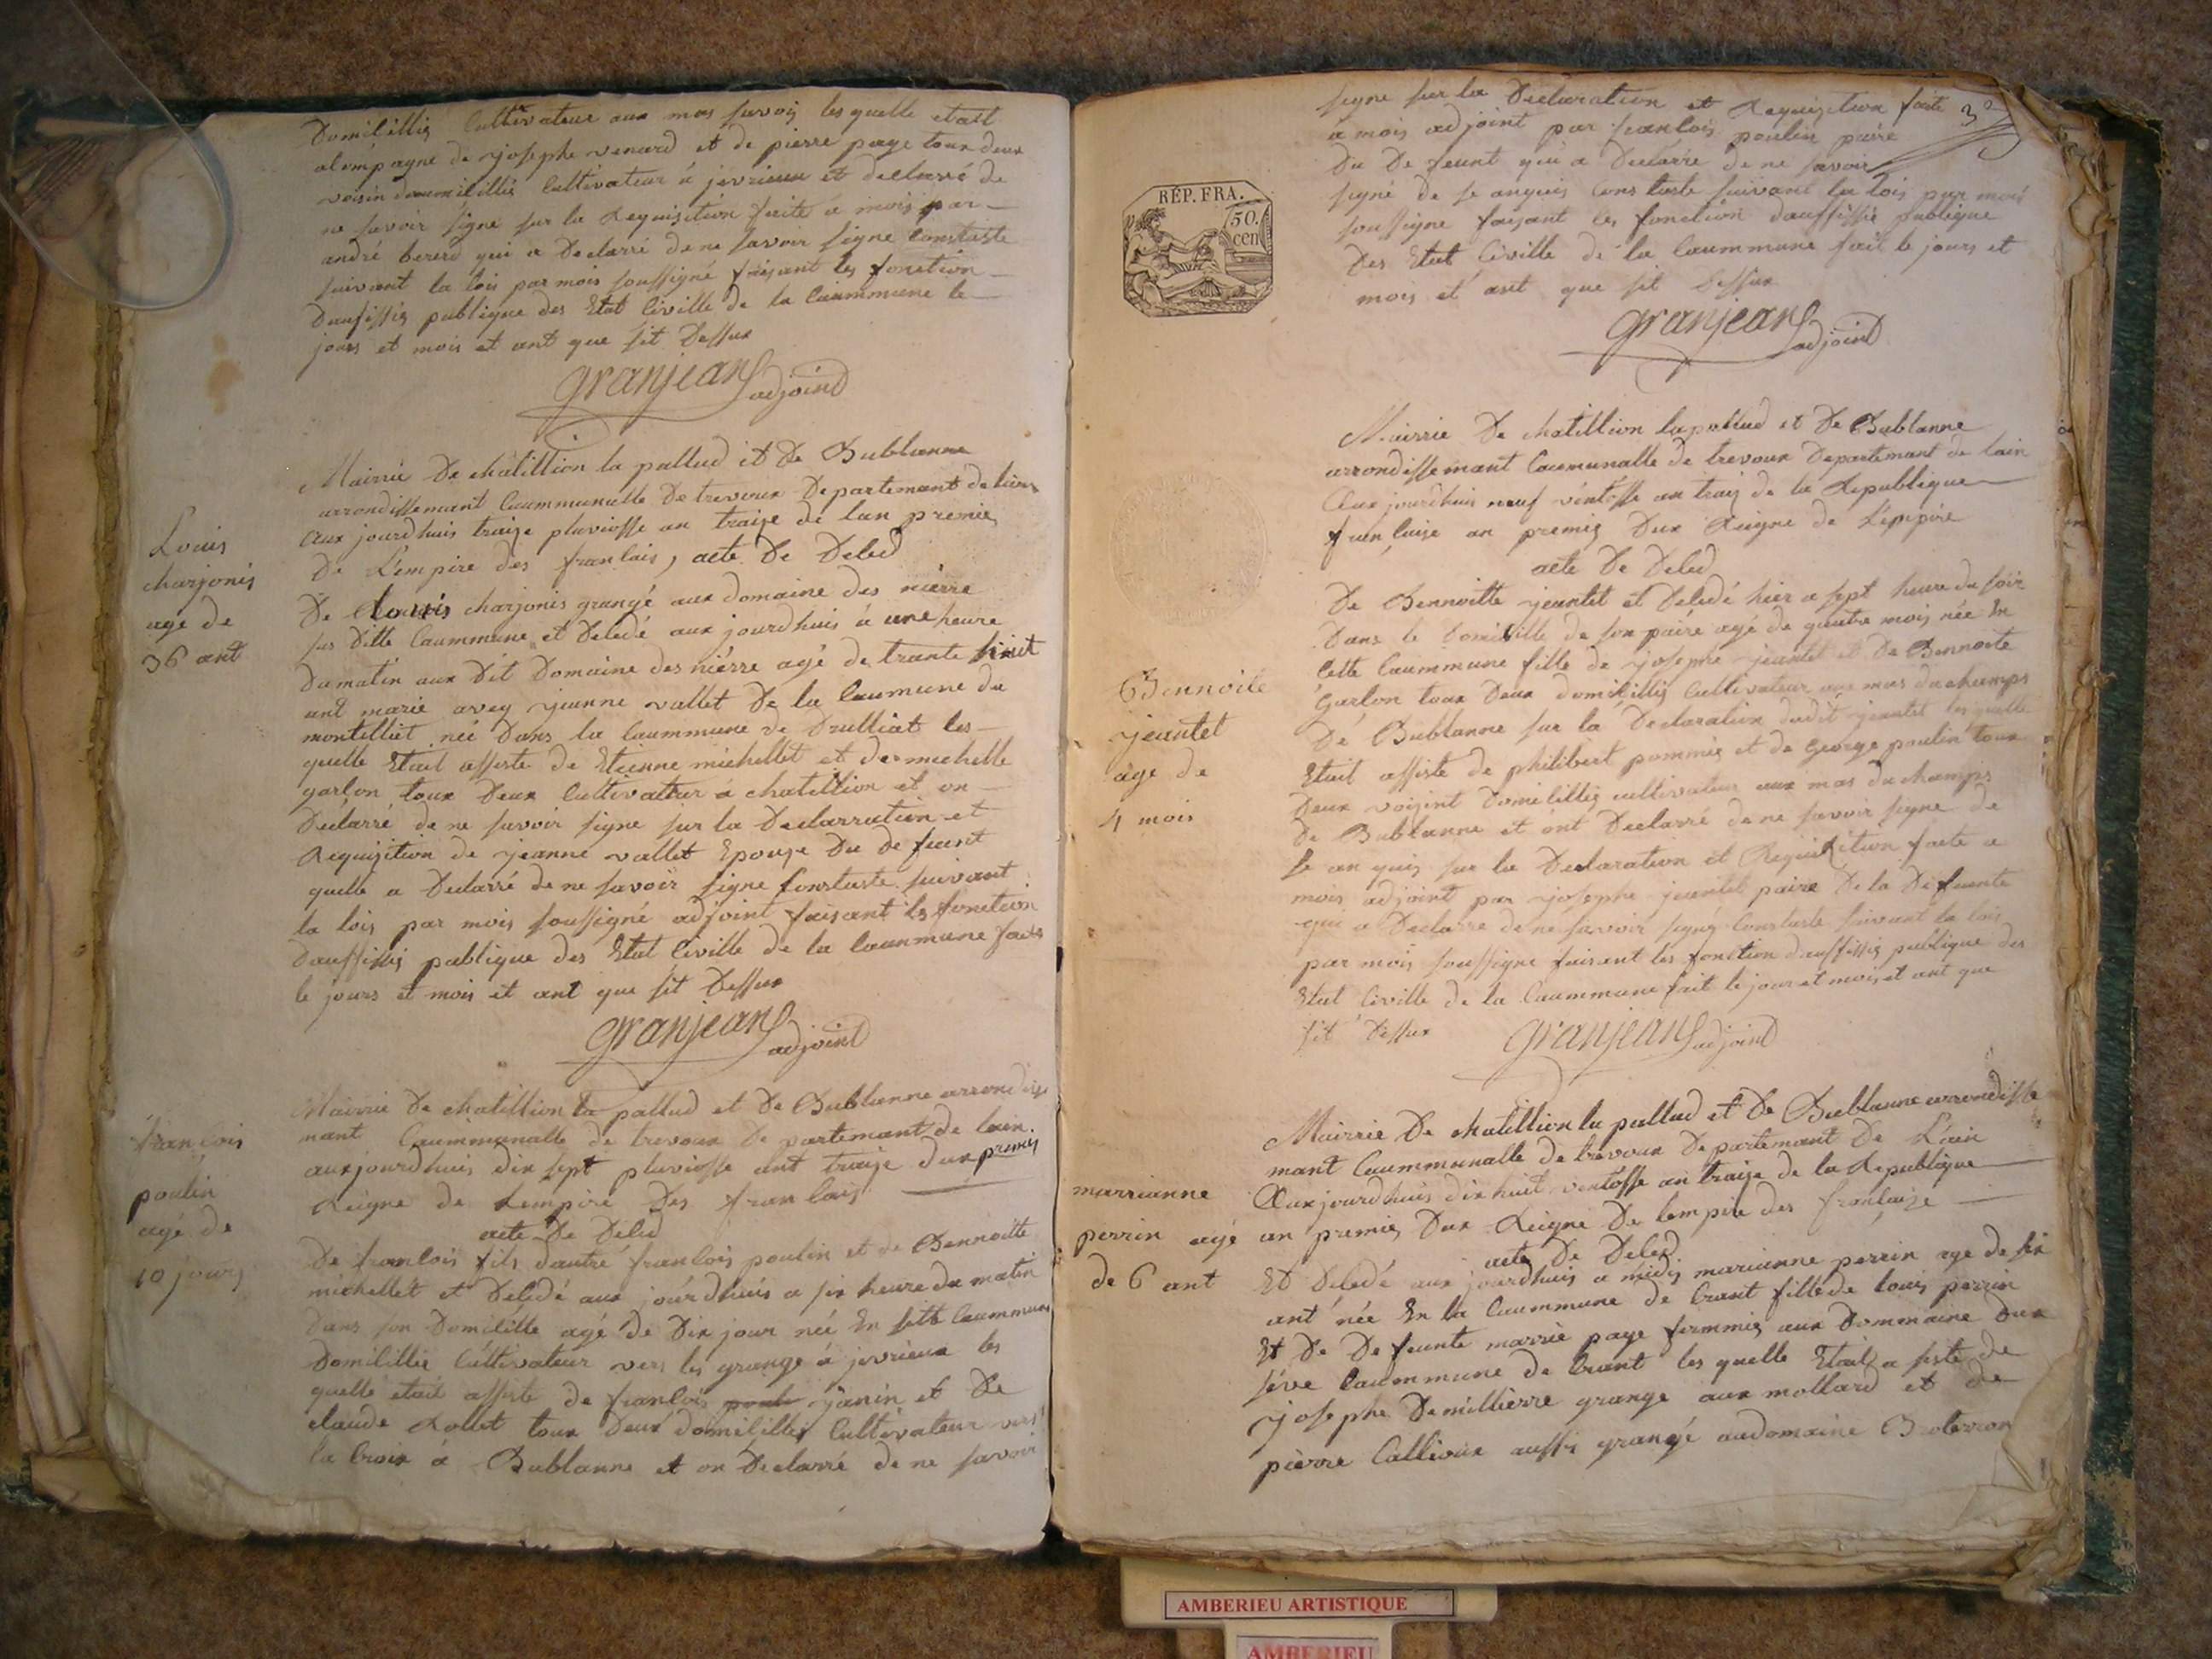 Domilillié Cultivateur aux mas servoz les quelle etait
alompagné de josephe venard et de pierre page toux deux
voisin doumilillié Cultivateur a jevrieux et declarré de
ne savoir signé sur la Requisition faite a mois par
andré qui a Declarré de ne savoir signe Constaste
suivant la lois par mois soussigné faisant les fonction
Daufissié publique des Etat Civille de la Caummune le
jours et mois et ant que sit Dessux
granjean adjoint
Mairrie De chatillion la pallud et De Bublanne
arrondissemant Caummunalle De trevoux Departemant de
Aux jourdhuis traize pluviosse an traize de lan premié
De L'empire des franlais, acte De Deled
Louis
charjonis
age de
36 ant
De Louis charjonis grangé aux domaine des niérre
sus Ditte Caummune et Deledé aux jourdhuis a une heure
Dumatin aux Dit Domaine des niérre agé de trante huit
ant marié avez jeanne vallet De la Caumune du
montelliét née Dans la Caummune de Drulliat les
quelle Etait assisté de Etienne michellet et de michelle
garlon toux Deux Cultivateur a chatillion et on
Déclarré de ne savoir signe sur la Declarration et
Requisition de jeanne vallet Epouze Du defeunt
quelle a Declarré de ne savoir signe Constaste suivant
la lois par mois soussigné adjoint faisant les fonction
Dauffissié publique des Etat Civille de la Caummune fait
le jours et mois et ant que sit Dessux
granjean adjoint
Mairrie De chatillion la pallud et De Bublanne arrondisse
mant Caummunalle de trevoux Departemant de lain
auxjourdhuis dix sept pluviosse ant traize dux premié
Reigne de Lempire Des franlais
acte De Deled
franlois
poulin
agé de
10 jours
De franlois fils dautre franlois poulin et de Bennoitte
michellet et Deledé aux jourdhuis a six heure du matin
Dans son Domilille agé de Dix jour née En sitte Caummune
Domilillié Cultivateur vers les grange a jevrieux les
quelle etait assisté de franlois janin et De
claude Rollet toux Deux domilillié Cultivateur vers
la Croix a Bublanne et on Declarré de ne savoir
3
signe sur la Declaration et Requisition faite
a mois adjoint par franlois poulin paire
Du De feunt qui a Declarré de ne savoir
signé de se anquis Constaste suivant la lois par mois
soussigne faisant les fonction dauffissié publique
Des Etat Civille de la Caummune fait le jours et
mois et ant que sit Dessux
granjean adjoint
RÉP. FRA.
50.
cen
Mairrie De chatillion lapallud et De Bublanne
arrondissemant Caumunalle de trevoux Departemant de lain
Aux jourdhuis neuf ventosse an traiz de la Republique
franlaise an premié Dux Reigne de L'empire
acte De Deled
Bennoite
jeantet
age de
4 mois
De Bennoitte jeantet et Deledé hier a sept heure du soir
Dans le Domilille de son paire agé de quatre mois née En
Cette Caummune fille de josephe jeantet et De Bennoite
Garlon toux Deux domilillié Cultivateur aux mas du champs
De Bublanne sur la Declaration dudit jeantet les quelle
Etait assisté de philibert pommié et de George poulin toux
Deux voisint Domilillié cultivateur aux mas du champs
De Bublanne et ont Declarré de ne savoir signe de
se an quis sur la Declaration et Requisition faite a
mois adjoint par josephe jeantet paire De la Defeunte
qui a Declarre de ne savoir signé Constaste suivant la lois
par mois soussigne faisent les fonction dauffissié publique des
Etat Civille de la Caummune fait le jour et mois et ant que
sit Dessux
granjean adjoint
Mairrie De chatillion la pallud et De Bublanne arrondisse
mant Caummunalle de trevoux Departemant De L'ain
Auxjourdhuis dix huit ventosse an traize de la Republique
an premié Dux Reigne De lempire des franlaise
acte De Deled
marrianne
perrin agé
de 6 ant
Et Deledé aux jourdhuis a midis marianne perrin age de six
ant née En la Caummune de Crant fille de louis perrin
Et De De feunte marrie page fermmié aux Dommaine Dux
séve Caummune de Crant les quelle Etait a sisté de
josephe Demillierre grange aux mollard et de
pierre Callioux aussi grangé audomaine
AMBERIEU ARTISTIQUE
AMBERIEU